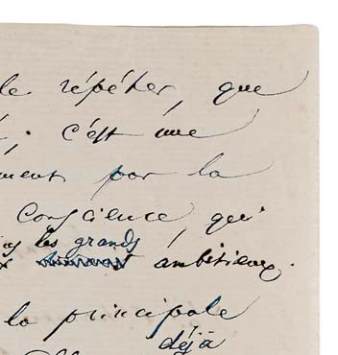 le répéter, que
; c'est une
ment par la
conscience, qui
les grands
ambitieux.
la principale
déjà